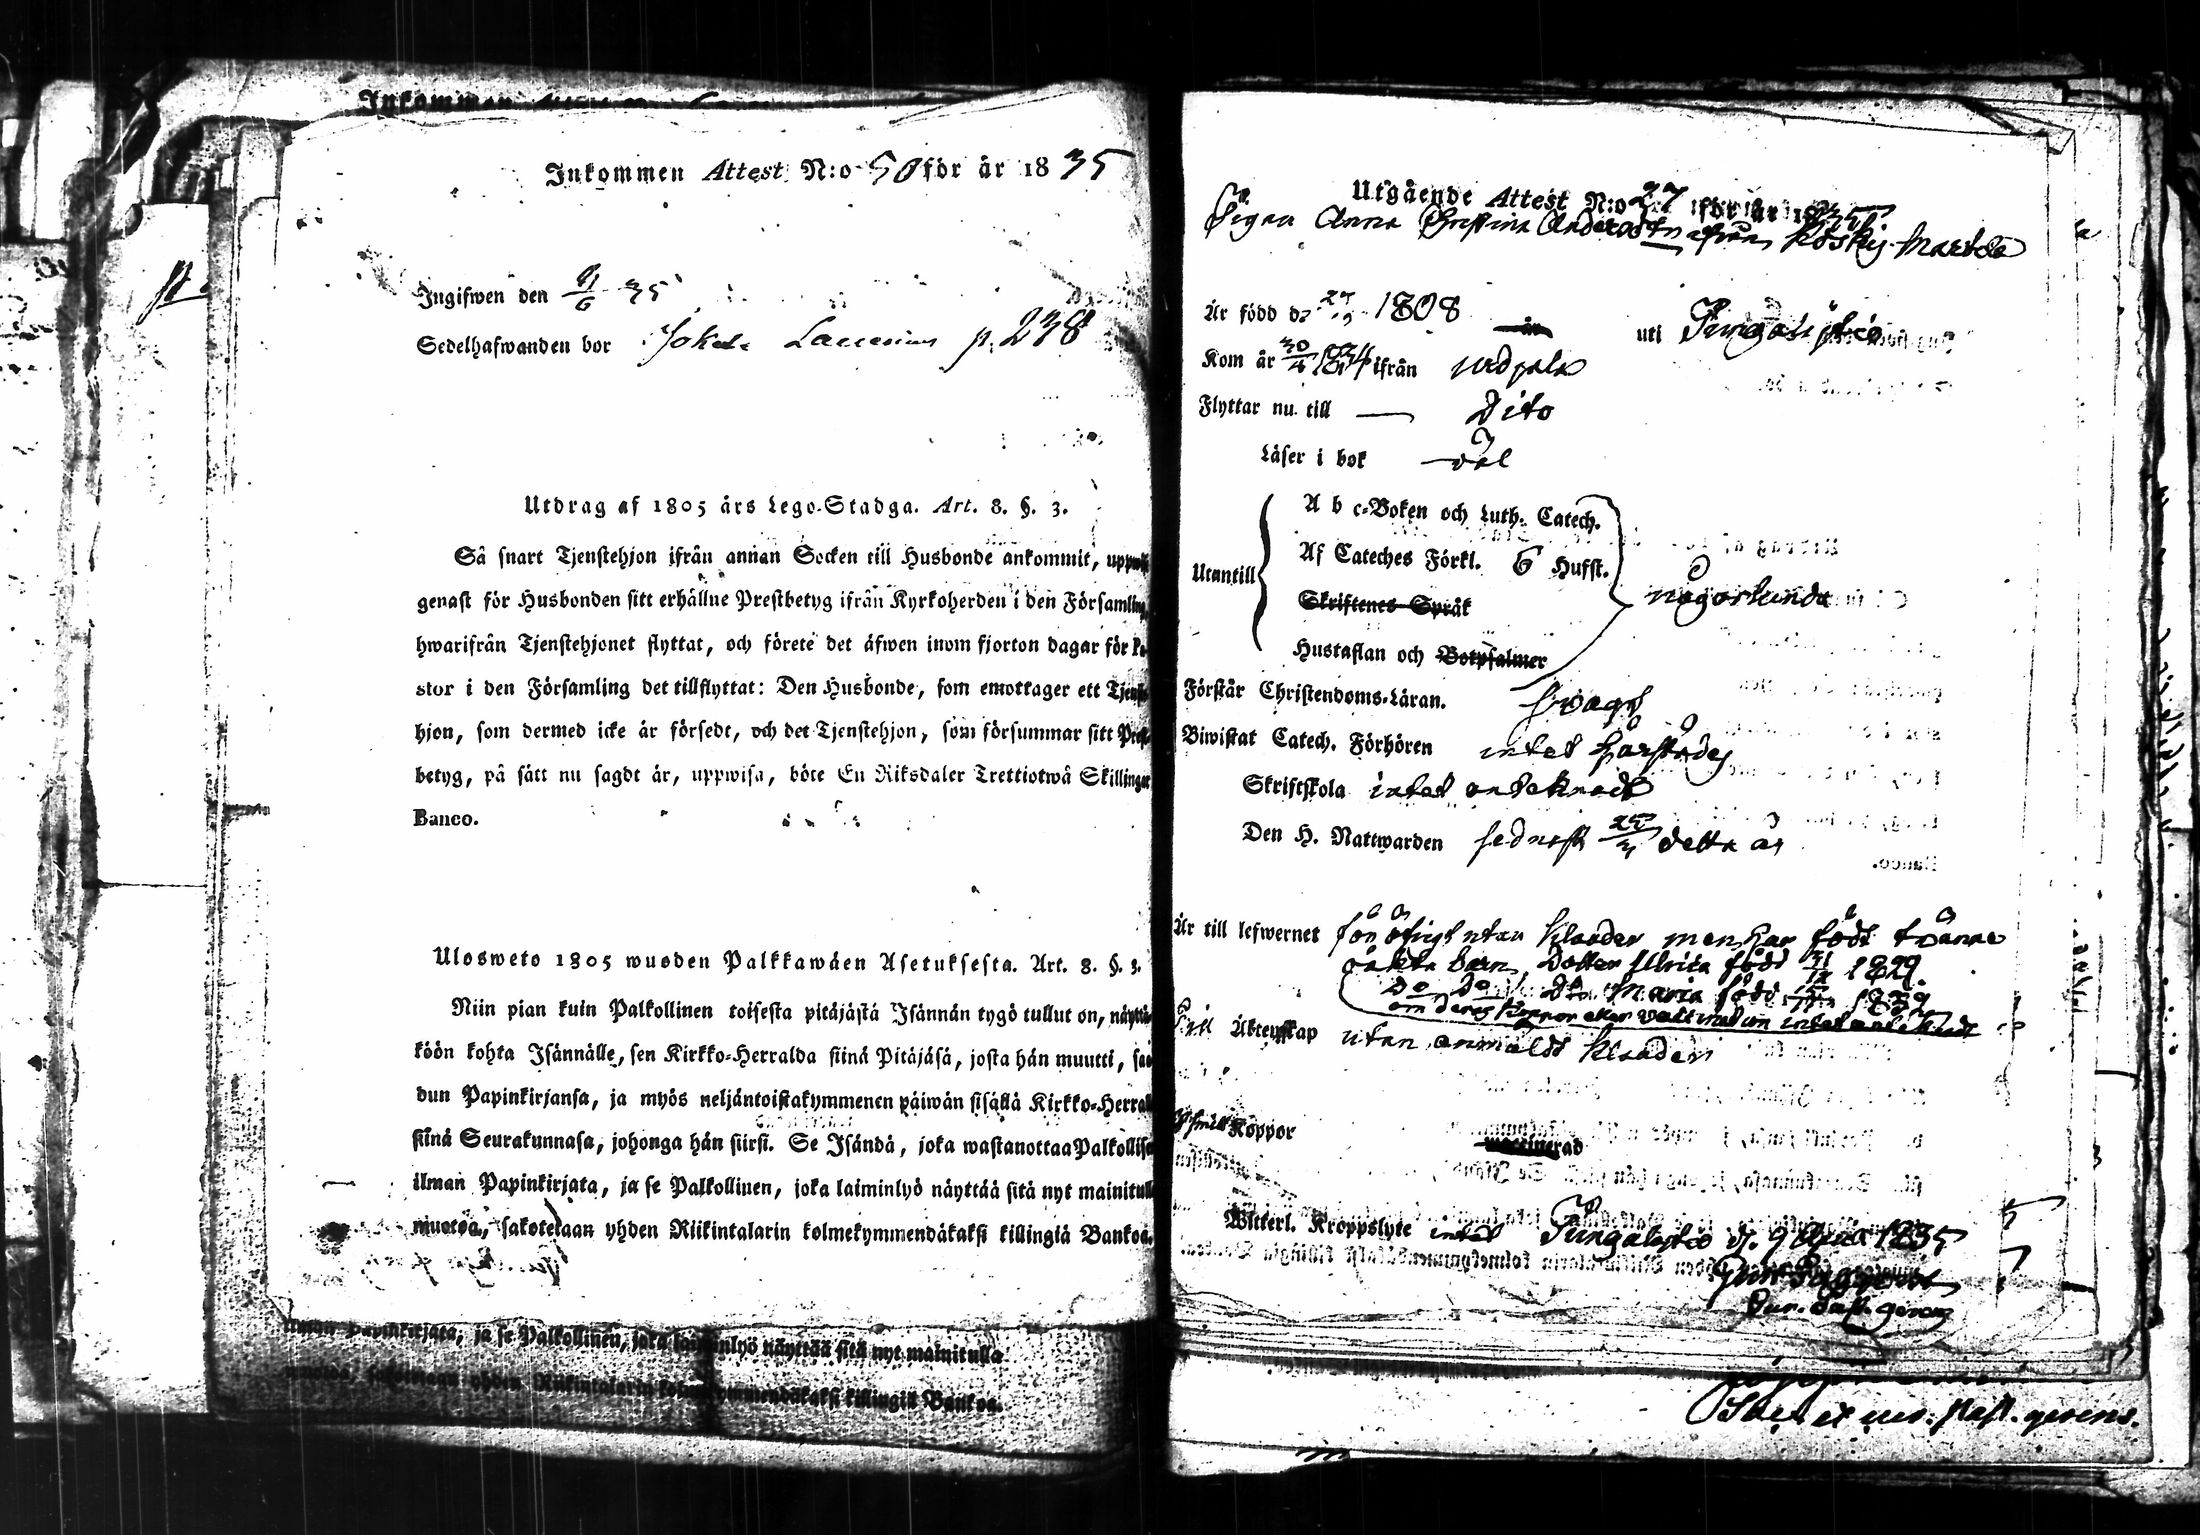 Inkommen Attest N:o 50 för år 1835
Ingifwen den 9/6 35
Sedelhafwanden bor p. 238
Utdrag af 1805 års Lego-Stadga. Art. 8. §. 3.
Så snart Tjenstehjon ifrån annan Socken till Husbonde ankommit,
genast för Husbonden sitt erhållne Prestbetyg ifrån Kyrkoherden i den Församling,
hwarifrån Tjenstehjonet flyttat, och förete det äfwen inom fjorton dagar för
stor i den Församling det tillflyttat: Den Husbonde, som emottager ett
hjon, som dermed icke är försedt, och det Tjenstehjon, som försummar sitt
betyg, på sätt nu sagdt är, uppwisa, böte En Riksdaler Trettiotwå Skillingar
Banco.
Ulosweto 1805 wuoden Palkkawäen Asetuksesta. Art. 8. §. 3.
Niin pian kuin Palkollinen toisesta pitäjästä Isännän tygö tullut on,
köön kohta Isännälle, sen Kirkko-Herralda siinä Pitäjäsä, josta hän muutti,
dun Papinkirjansa, ja myös neljäntoistakymmenen päiwän sisällä Kirkko-
siinä Seurakunnasa, johonga hän siirsi. Se Isändä, joka wastanottaa
ilman Papinkirjata, ja se Palkollinen, joka laiminlyö näyttää sitä nyt
muotoa, sakotetaan yhden Riikintalarin kolmekymmendäkaksi killingiä Bankoa.
ilman Papinkirjata, ja se Palkollinen, joka laiminlyö näyttää sitä nyt mainitulla
muotoa, sakotetaan yhden Riikintalarin kolmekymmendäkaksi killingiä Bankoa.
Utgående Attest N:o 27 för år 1835
Pigan Anna Christina Andersdtr ifrån Koskis Marttila
Är född d. 1808 uti Pungalaitio
Kom år 30/4 1834 ifrån Urdpala
Flyttar nu till — Dito
Läser i bok väl
Utantill
A b c-Boken och Luth. Catech.
Af Cateches Förkl. 6 Hufst.
Skriftenes Språk
någorlunda
Hustaflan och Botpsalmer
Förstår Christendoms-Läran. svagt
Biwistat Catech. Förhören intet härstädes
Skriftskola intet anteknadt
Den H. Nattwarden sednast 25/3 detta år
Är till lefwernet för öfrigt utan klander men har födt tvänne
oäkta barn, Dotter Ullrica född 1829.
Do Do Maria född
Till Äktenskap utan anmäldt klander
Koppor
vaccinerad
Witterl. Kroppslyte intet
d. 9 1835
past. gerens.